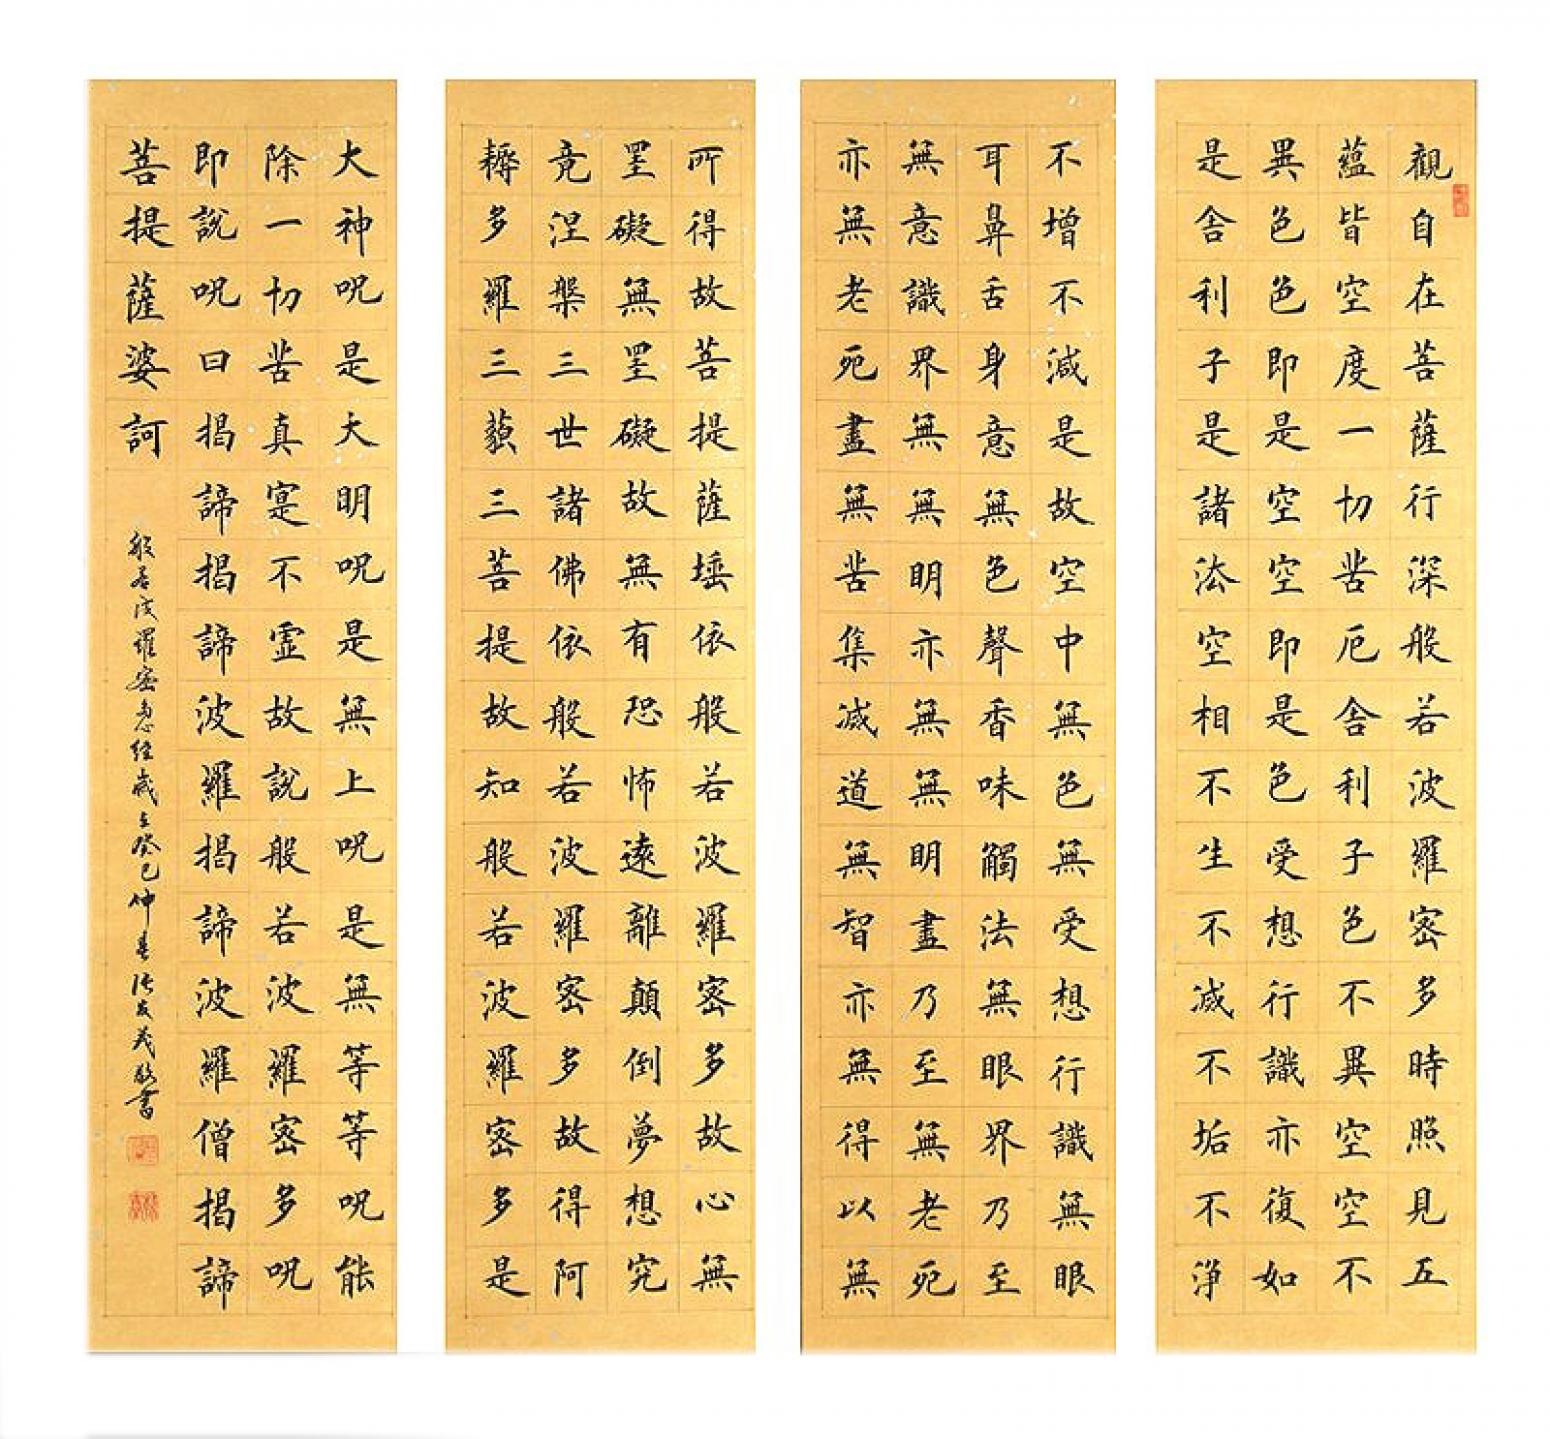 觀自在菩薩行深般若波羅密多時照見五
蘊皆空度一切苦厄舍利子色不異空空不
異色色即是空空即是色受想行識亦復如
是舍利子是諸法空相不生不滅不垢不淨
不增不減是故空中無色無受想行識無眼
耳鼻舌身意無色聲香味觸法無眼界乃至
無意識界無無明亦無無明盡乃至無老死
亦無老死盡無苦集滅道無智亦無得以無
所得故菩提薩埵依般若波羅密多故心無
罣礙無罣礙故無有恐怖遠離顛倒夢想究
竟涅槃三世諸佛依般若波羅密多故得阿
耨多羅三藐三菩提故知般若波羅密多是
大神呪是大明呪是無上呪是無等等呪能
除一切苦真寔不虛故說般若波羅密多呪
即說呪曰揭諦揭諦波羅揭諦波羅僧揭諦
菩提薩婆訶
般若波羅密多心經歲在癸巳仲春張友茂敬書